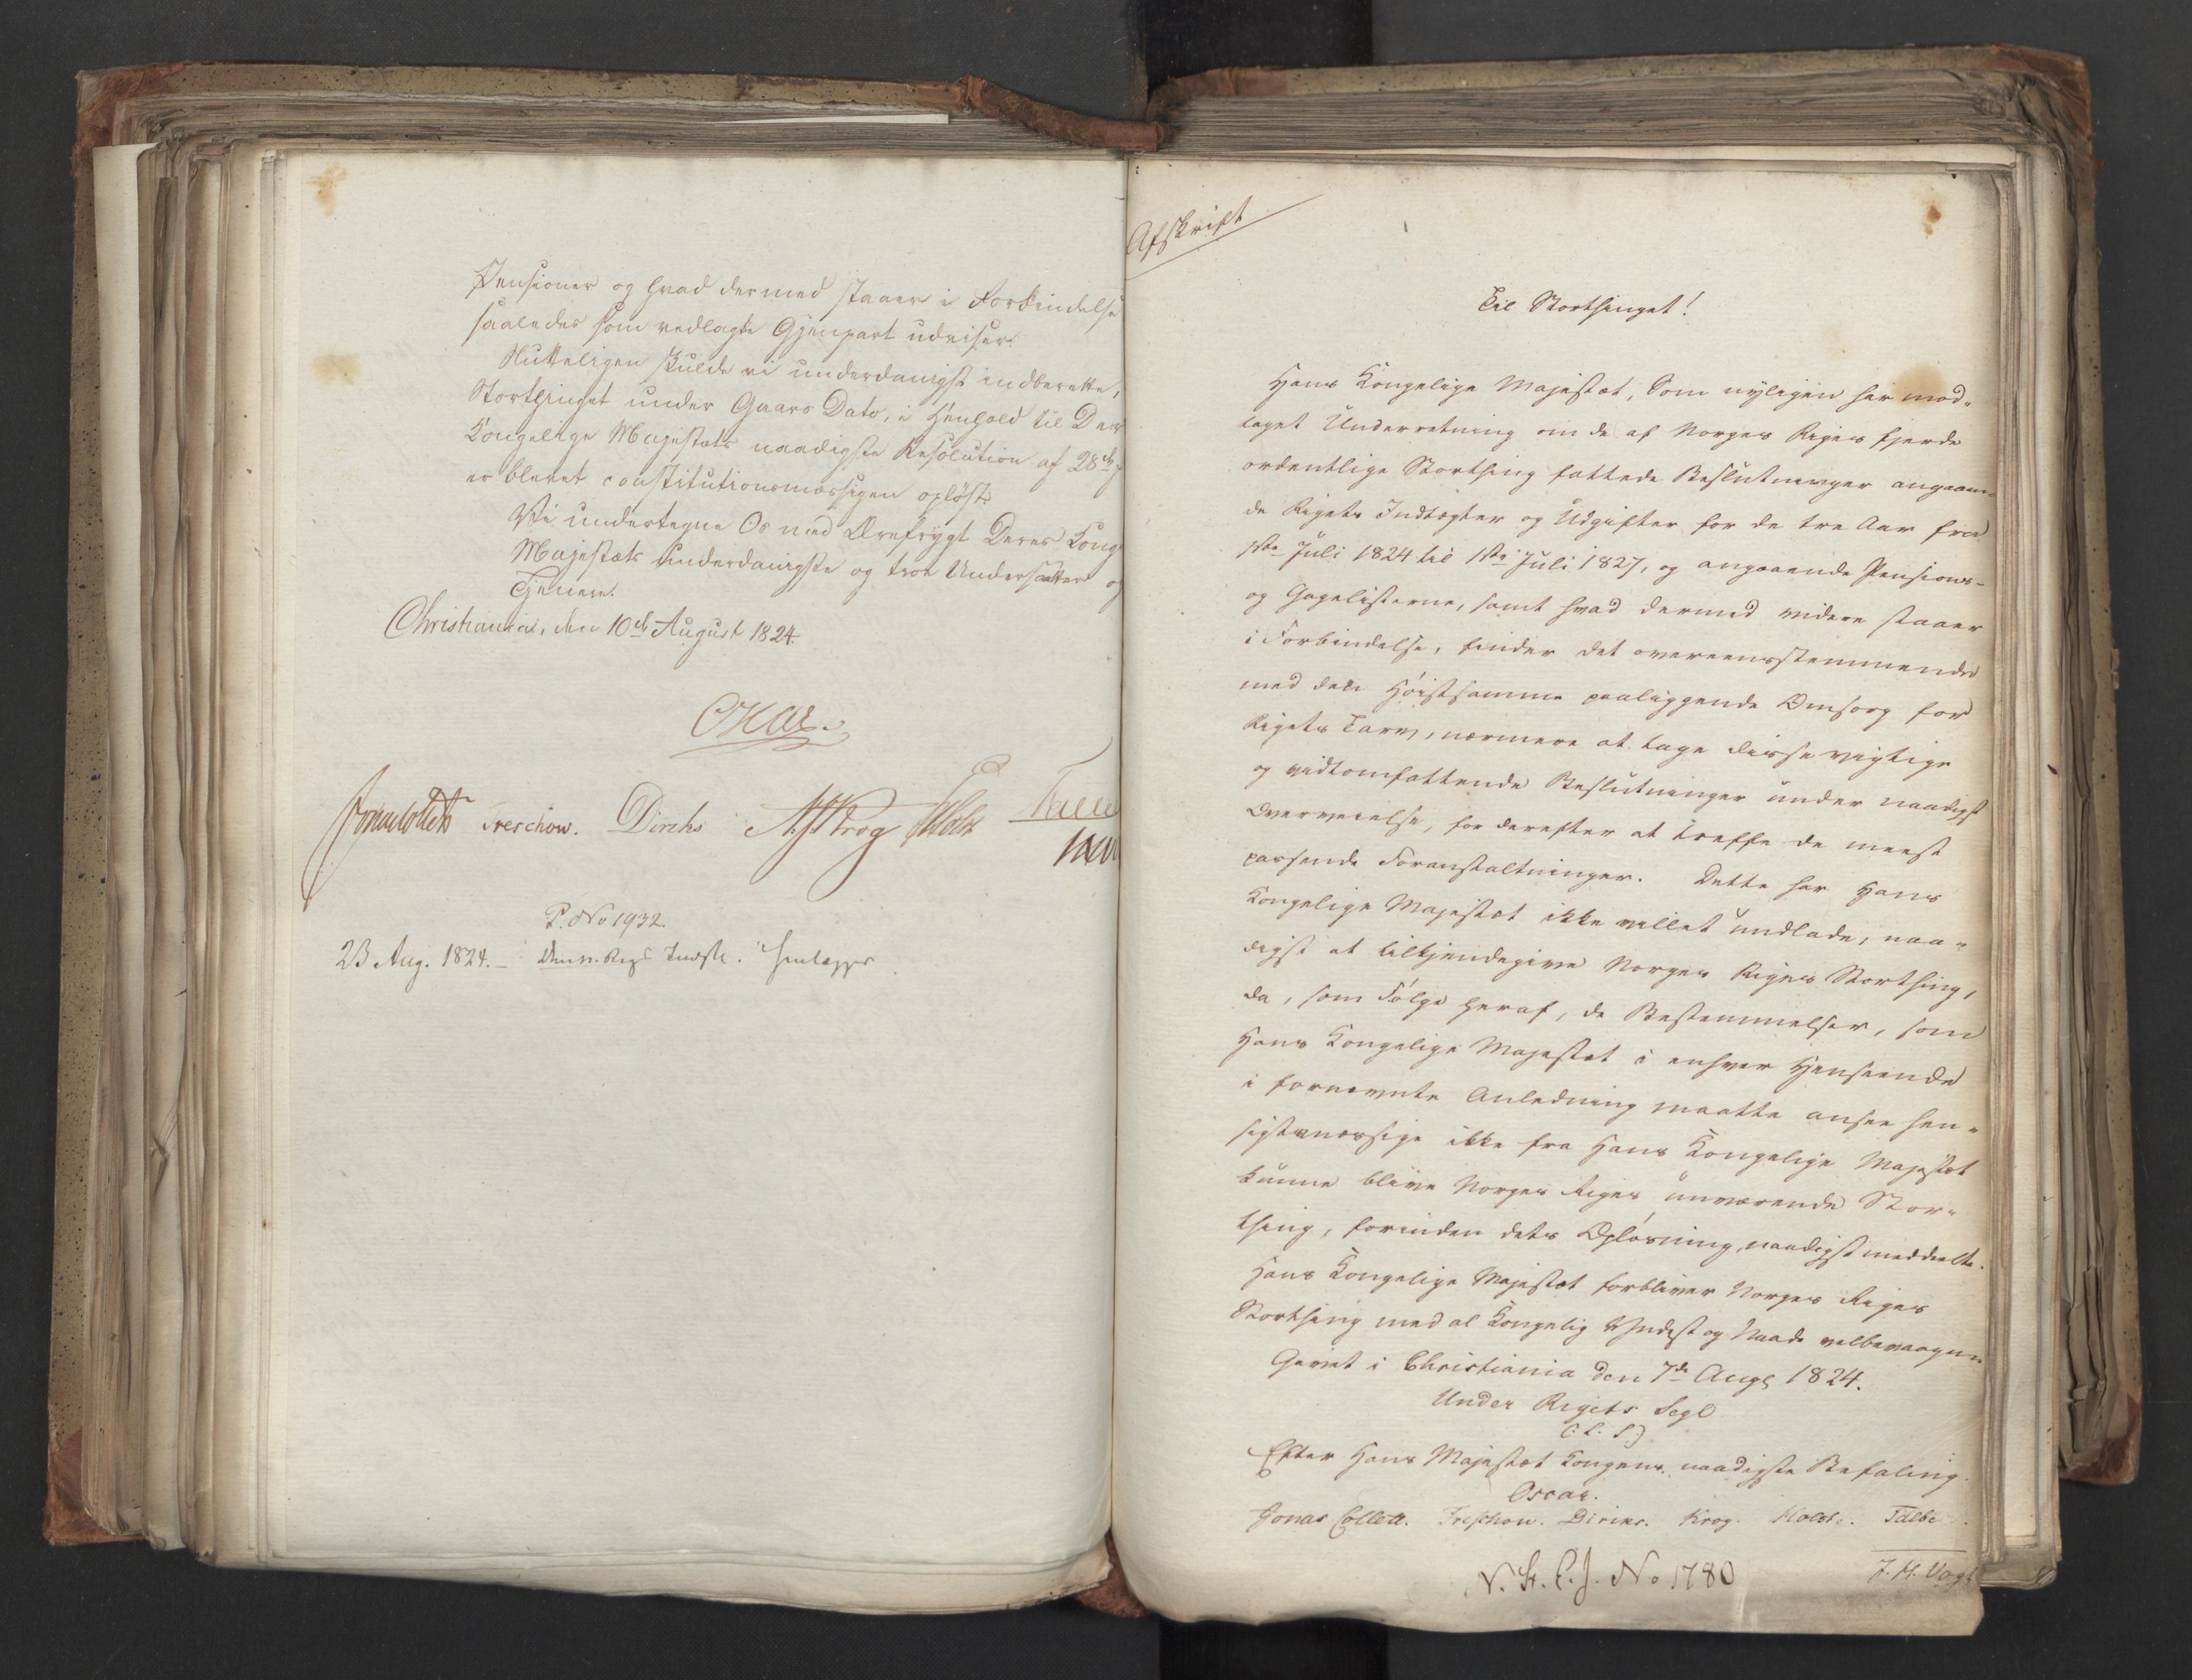 Pensioner og hvad dermed staaer i Forbindelse
saaledes som vedlagte Gjenpart udviser.
Slutteligen skulde vi underdanigst indberette,
Storthinget under Gaars Dato, i Henhold til Der
Kongelige Majestæts naadigste Resolution af 28de
er blevet constitutionsmæssigen opløst.
Vi undertegne Os med Ærefrygt Deres Kong
Majestæts underdanigste og troe Undersaatter og
Tjenere.
Christiania, den 10de August 1824.
Oscar.
Jonas Collett Treschow. Diriks Krog Holst Falbe
P. No 1932.
23 Aug. 1824. – Indst. Henlægges
Afskrift
Til Storthinget!
Hans Kongelige Majestæt, som nyligen har mod-
taget Underretning om de af Norges Riges fjerde
ordentlige Storthing fattede Beslutninger angaaen-
de Rigets Indtægter og Udgifter for de tre Aar fra
1ste Juli 1824 til 1ste Juli 1827, og angaaende Pensions-
og Gagelisterne, samt hvad dermed videre staaer
i Forbindelse, finder det overeensstemmende
med den Høistsamme paaliggende Omsorg for
Rigets Tarv, nærmere at tage disse vigtige
og vidtomfattende Beslutninger under naadigst
Overveielse, for derefter at træffe de meest
passende Foranstaltninger. Dette har Hans
Kongelige Majestæt ikke villet undlade, naa-
digst at tilkjendegive Norges Riges Storthing,
da, som Følge heraf, de Bestemmelser, som
Hans Kongelige Majestæt i enhver Henseende
i fornævnte Anledning maatte ansee hen-
sigtsmæssige ikke fra Hans Kongelige Majestæt
kunne blive Norges Riges nuværende Stor-
thing, forinden dets Opløsning, naadigst meddeelte.
Hans Kongelige Majestæt forbliver Norges Riges
Storthing med al Kongelig Yndest og Naade velbevaagen
Givet i Christiania den 7de Aug 1824.
Under Rigets Segl
(L. S.)
Efter Hans Majestæt Kongens naadigste Befaling.
Oscar.
Jonas Collett. Treschow. Diriks. Krog. Holst. Falbe.
J. H. Vogt
N. St. E. J. No 1780